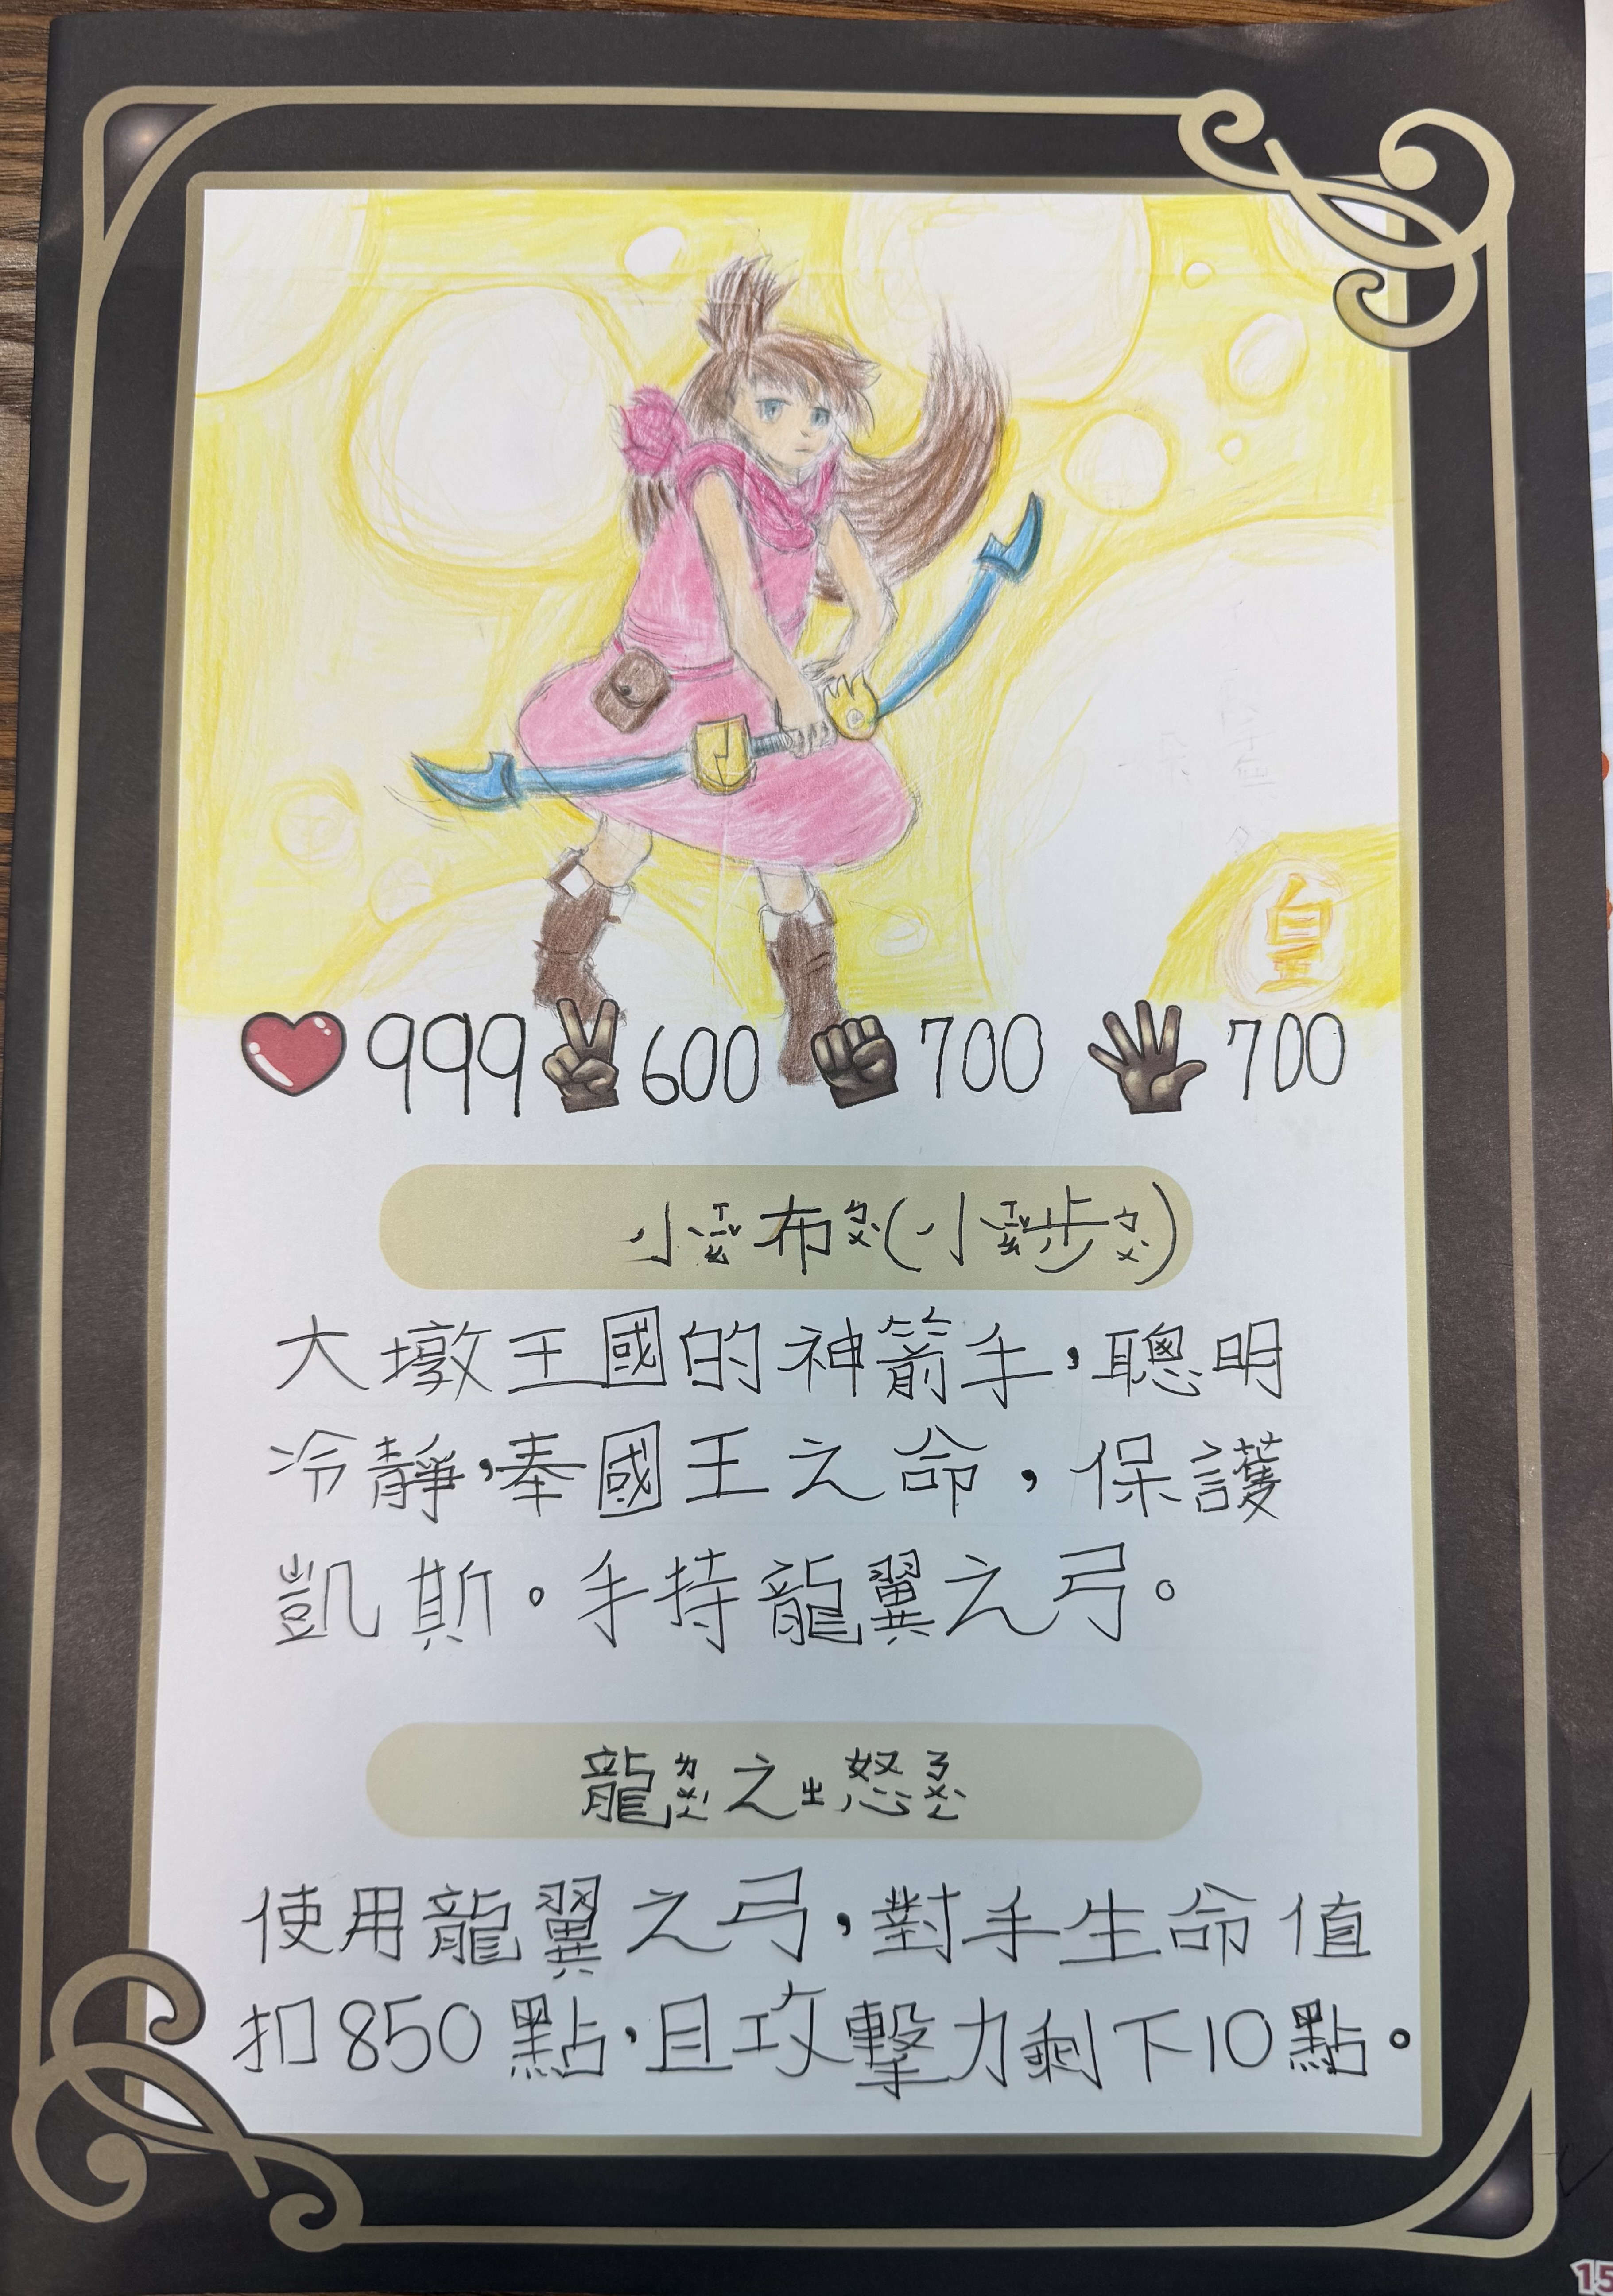 皇
999 600 700 700
小ㄒㄧㄠˇ布ㄅㄨˋ(小ㄒㄧㄠˇ步ㄅㄨˋ)
大墩王國的神箭手，聰明
冷靜，奉國王之命，保護
凱斯。手持龍翼之弓。
龍ㄌㄨㄥˊ之ㄓ怒ㄋㄨˋ
使用龍翼之弓，對手生命值
扣850點，且攻擊力剩下10點。
15